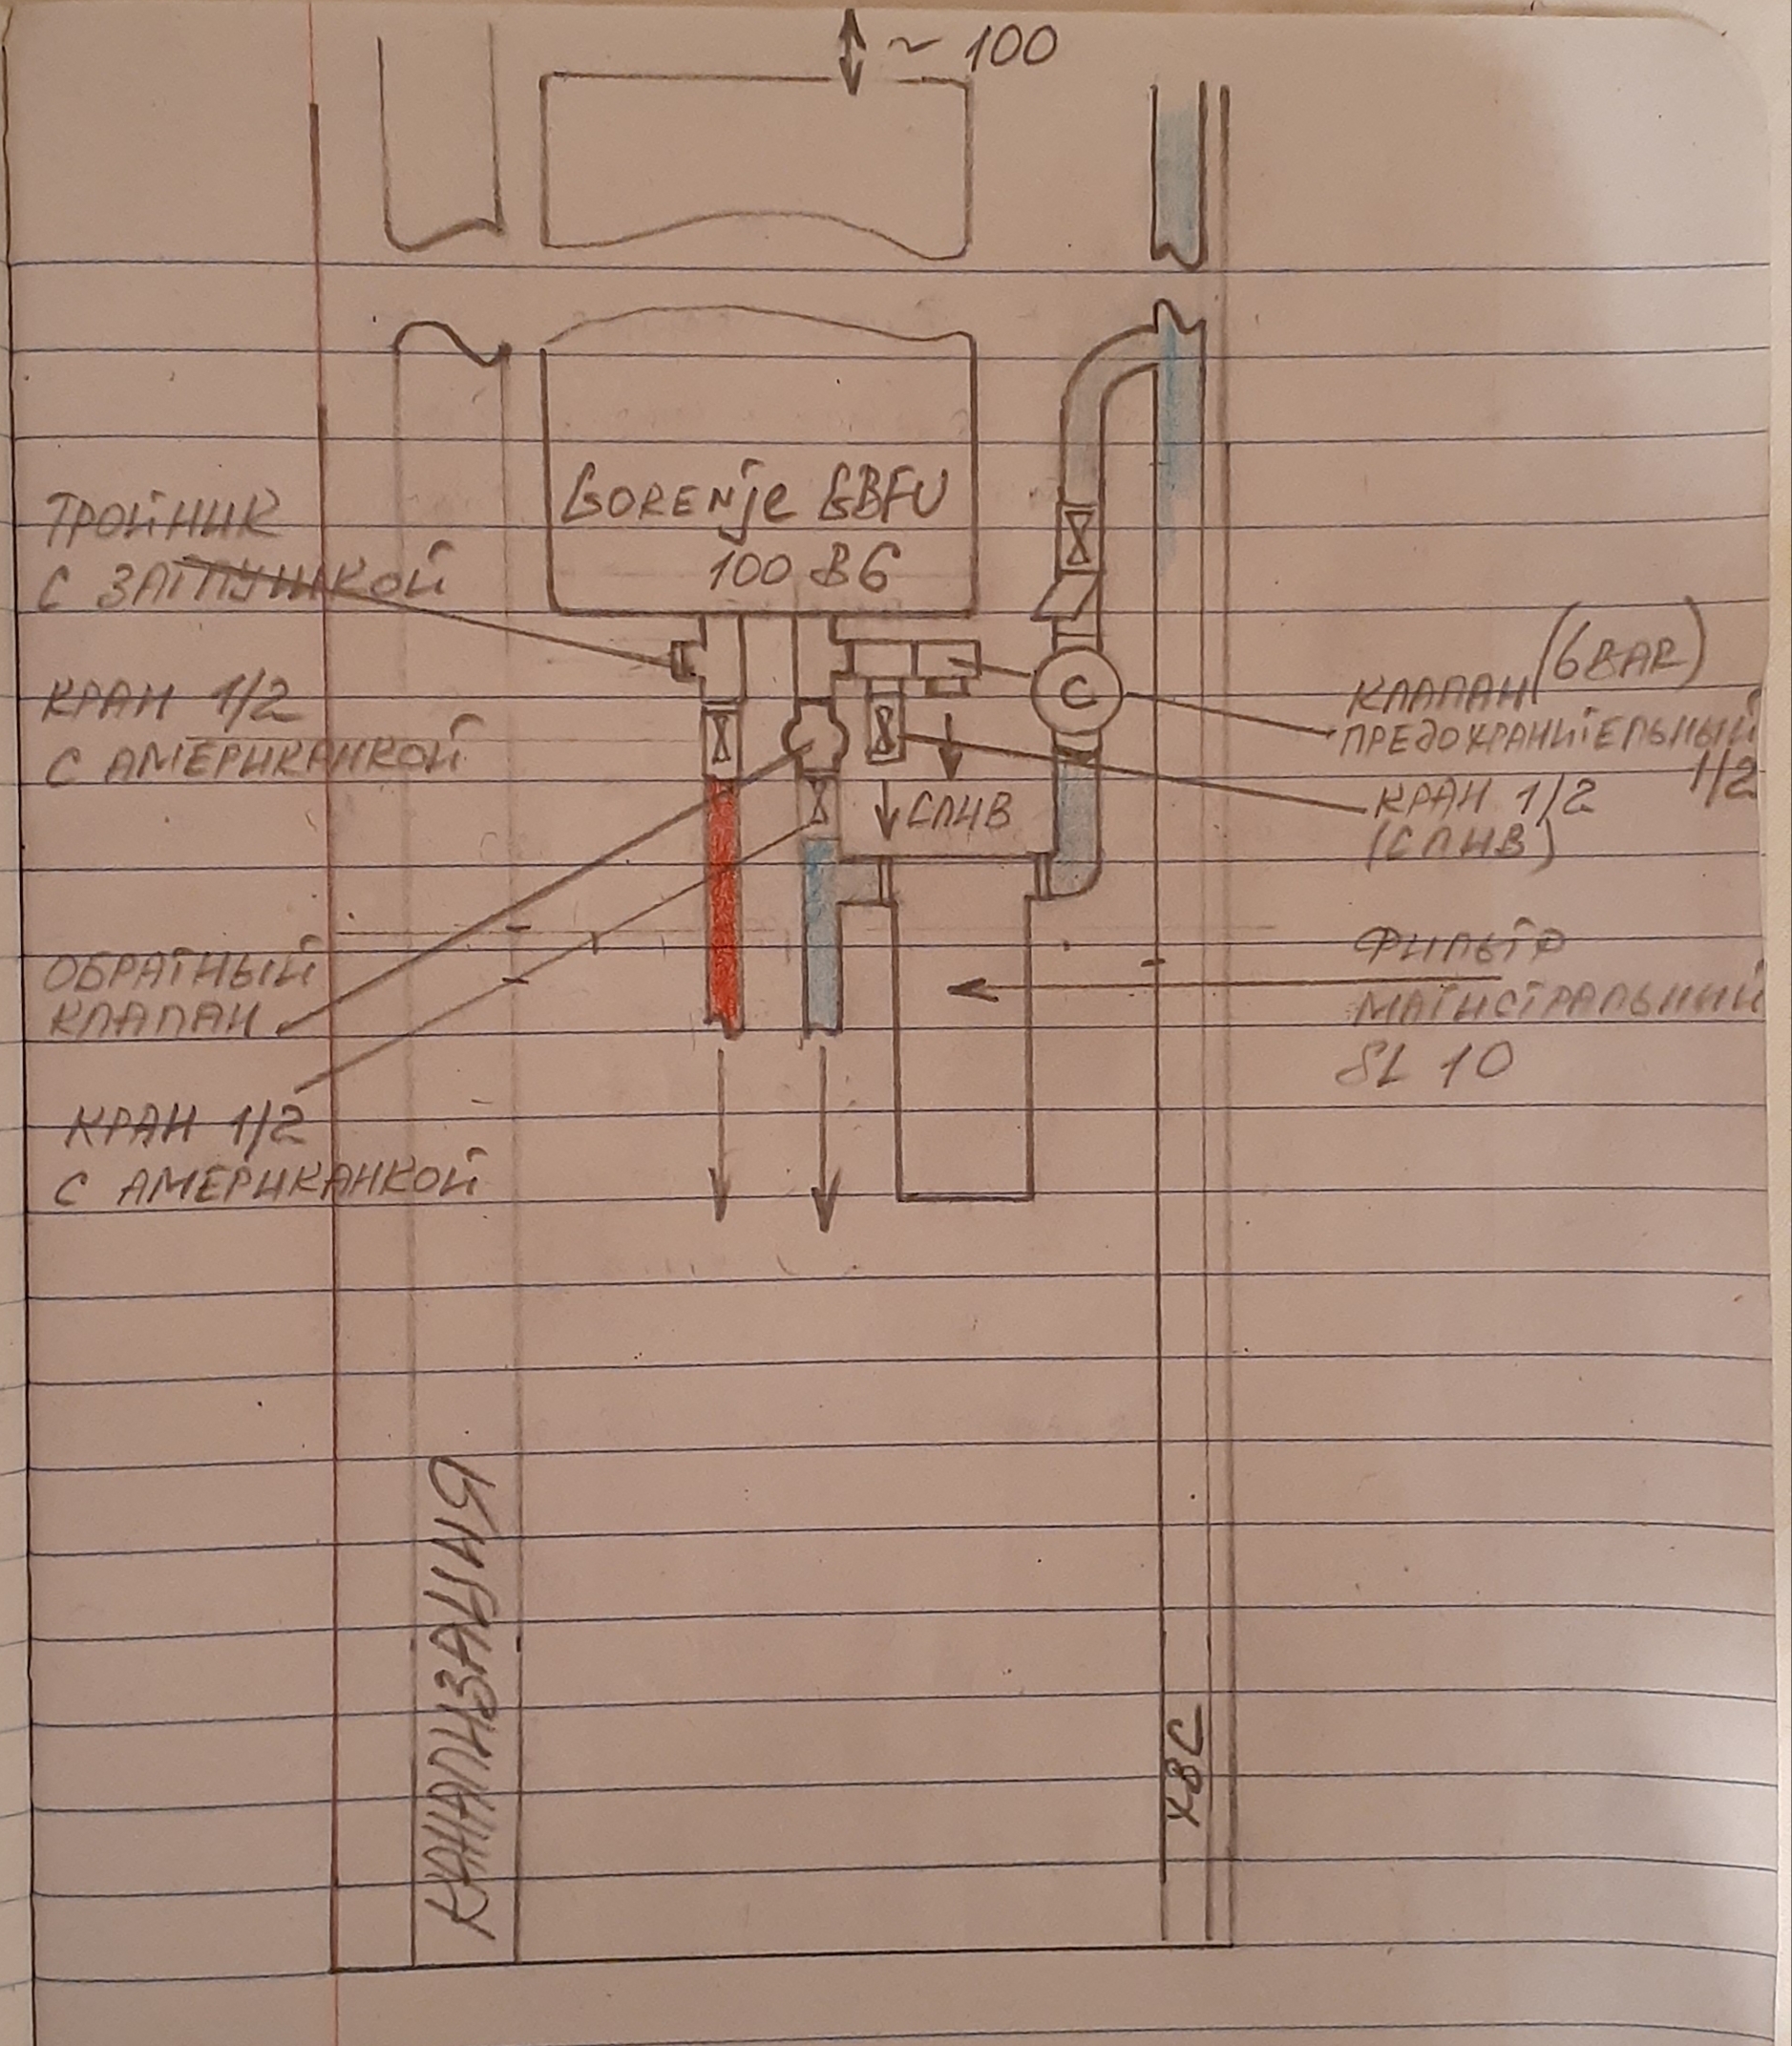 ~ 100
GORENjE GBFU
100 B6
ТРОЙНИК
С ЗАГЛУШКОЙ
КРАН 1/2
С АМЕРИКАНКОЙ
ОБРАТНЫЙ
КЛАПАН
КРАН 1/2
С АМЕРИКАНКОЙ
С
СЛИВ
КЛАПАН (6 BAR)
ПРЕДОХРАНИТЕЛЬНЫЙ
1/2
КРАН 1/2
(СЛИВ)
ФИЛЬТР
МАГИСТРАЛЬНЫЙ
SL 10
КАНАЛИЗАЦИЯ
ХВС